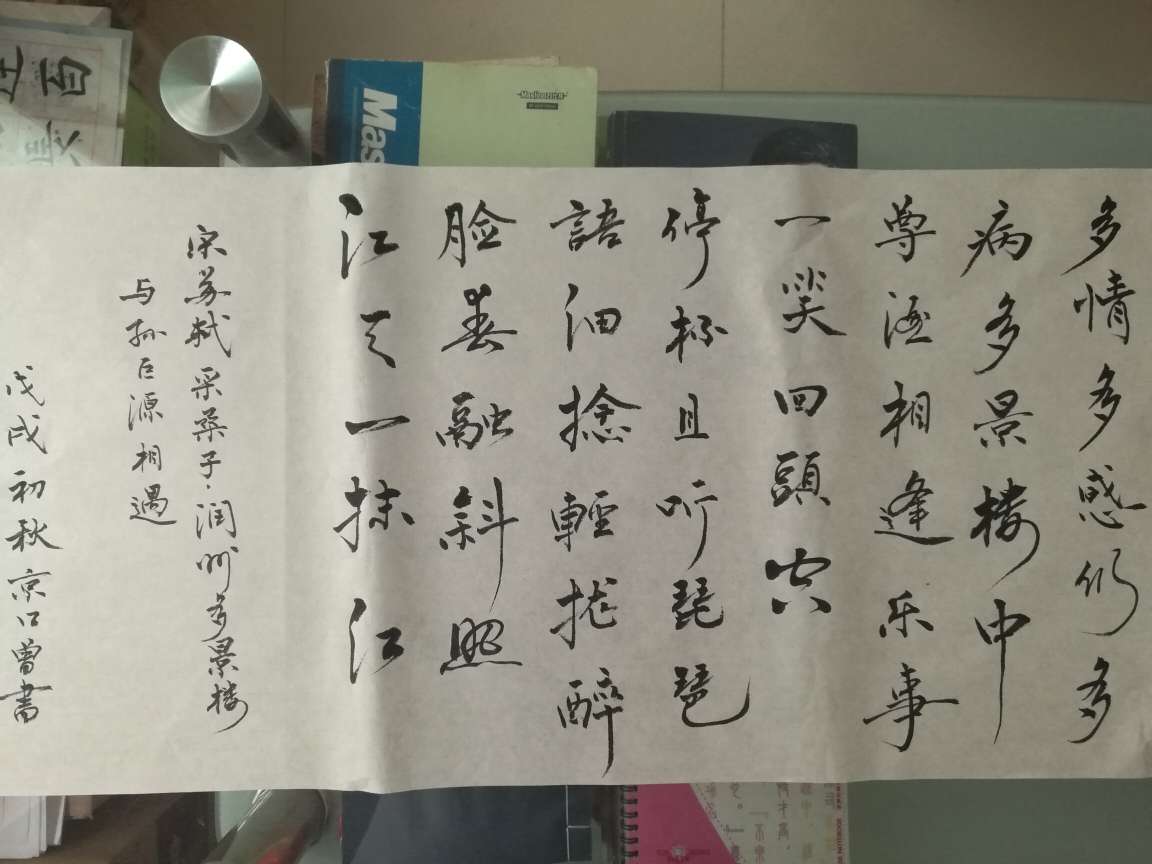 多情多感仍多
病多景楼中
尊酒相逢乐事
一笑回頭空
停杯且听琵琶
語细捻輕拢醉
脸春融斜照
江天一抹红
宋苏轼采桑子·润州多景楼
与孙巨源相遇
戊戌初秋京口曾書
Mas